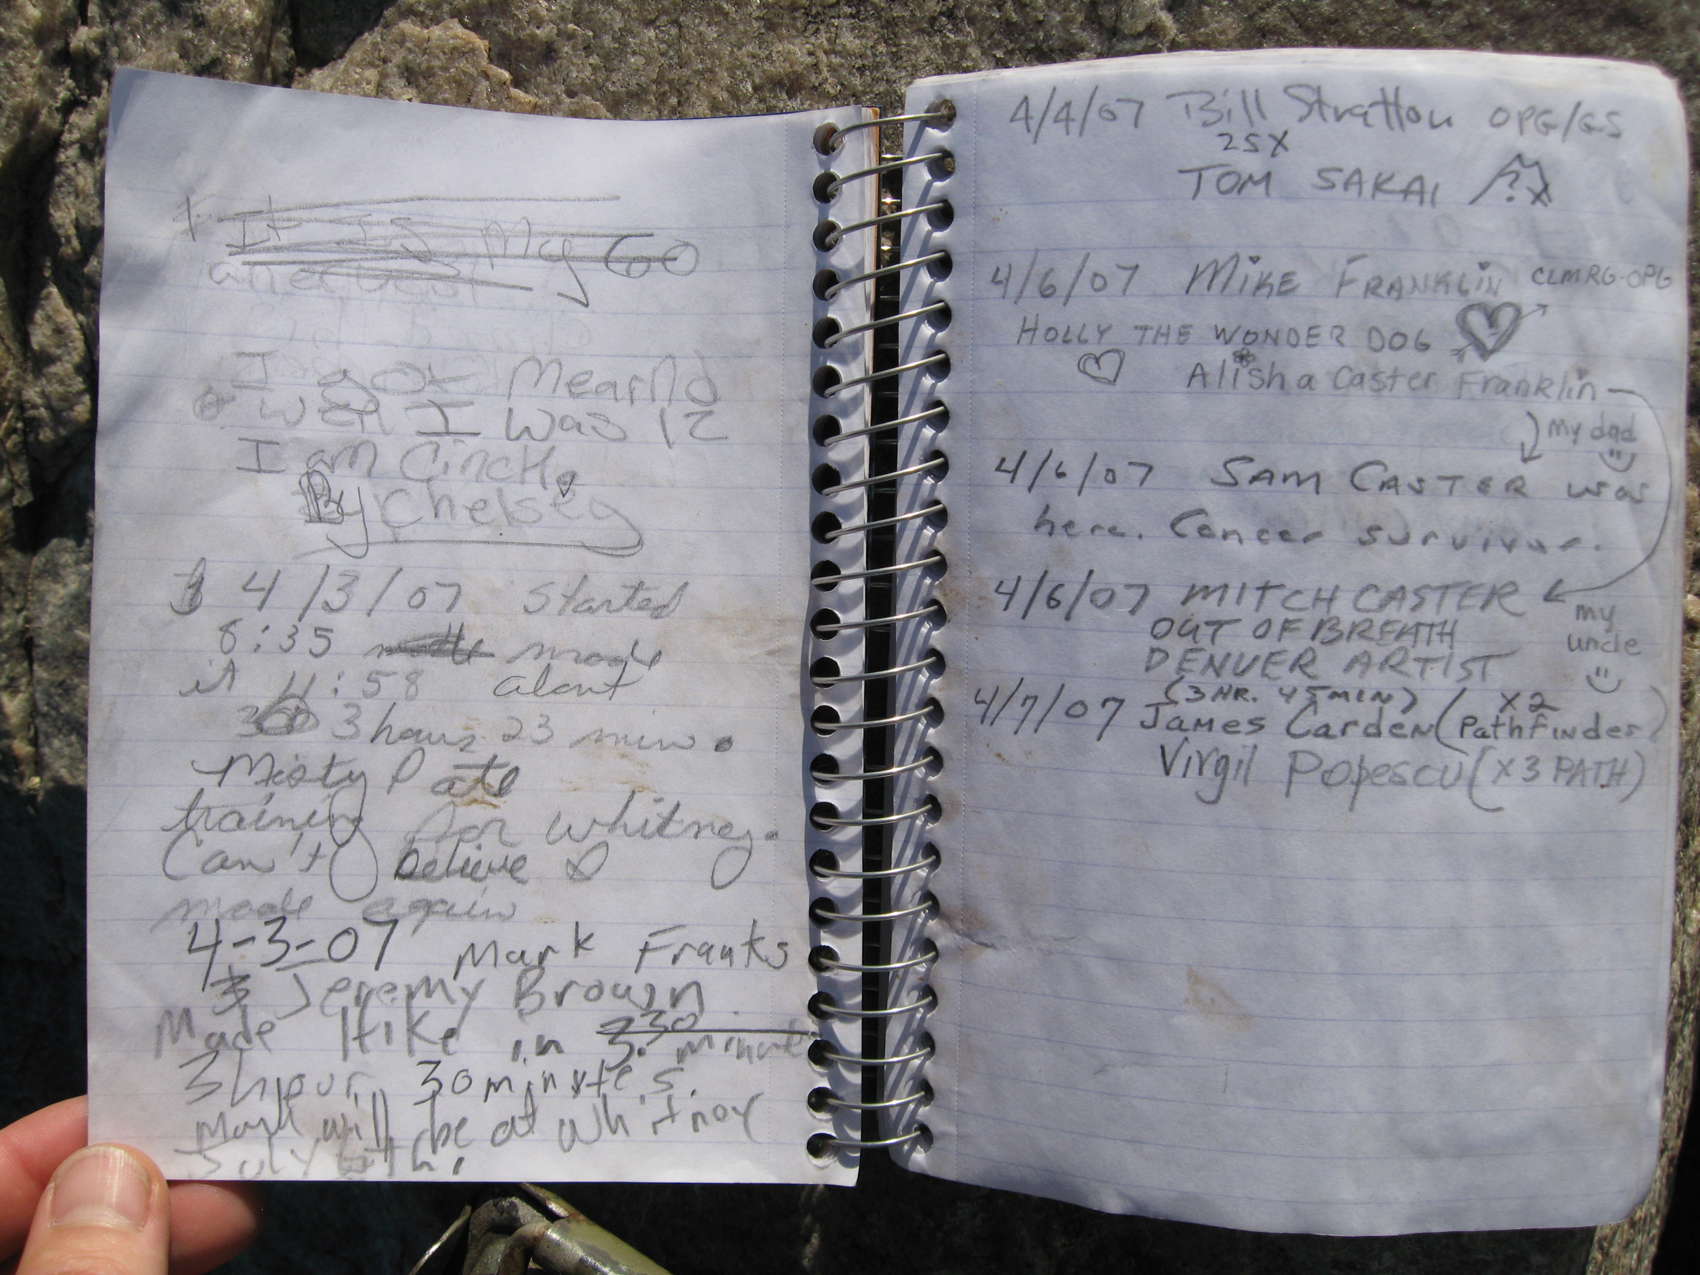 It is my 60
I got Mearild
wen I was 12
I am Cinche
By Chelsey
4/3/07 Started
8:35 made
it 11:58 about
3 hours 23 min.
Misty Pate
training for Whitney.
Can't believe I
made again
4-3-07 Mark Franks
& Jeremy Brown
Made Hike in 3:30 minut
3 hour 30 minutes.
Mark will be at Whitney
July
4/4/07 Bill Stratton OPG/GS
25X
TOM SAKAI
4/6/07 MIKE FRANKLIN CLMRG-OPG
HOLLY THE WONDER DOG
Alisha Caster Franklin
my dad
4/6/07 SAM CASTER was
here. Cancer survivor.
4/6/07 MITCH CASTER
my
uncle
OUT OF BREATH
DENVER ARTIST
(3 HR. 45 MIN)
4/7/07 James Carden (x2 Pathfinder)
Virgil Popescu (x3 PATH)